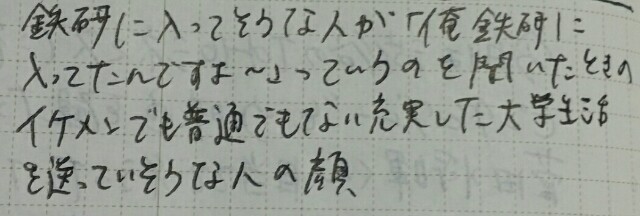 鉄研に入ってそうな人が「俺鉄研に
入ってたんですよ〜」っていうのを聞いたときの
イケメンでも普通でもない充実した大学生活
を送っていそうな人の顔